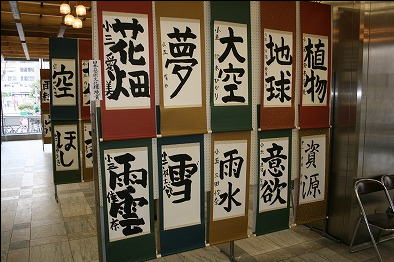 花畑
夢
大空
地球
植物
雨雲
雪
雨水
意欲
資源
空
ほし